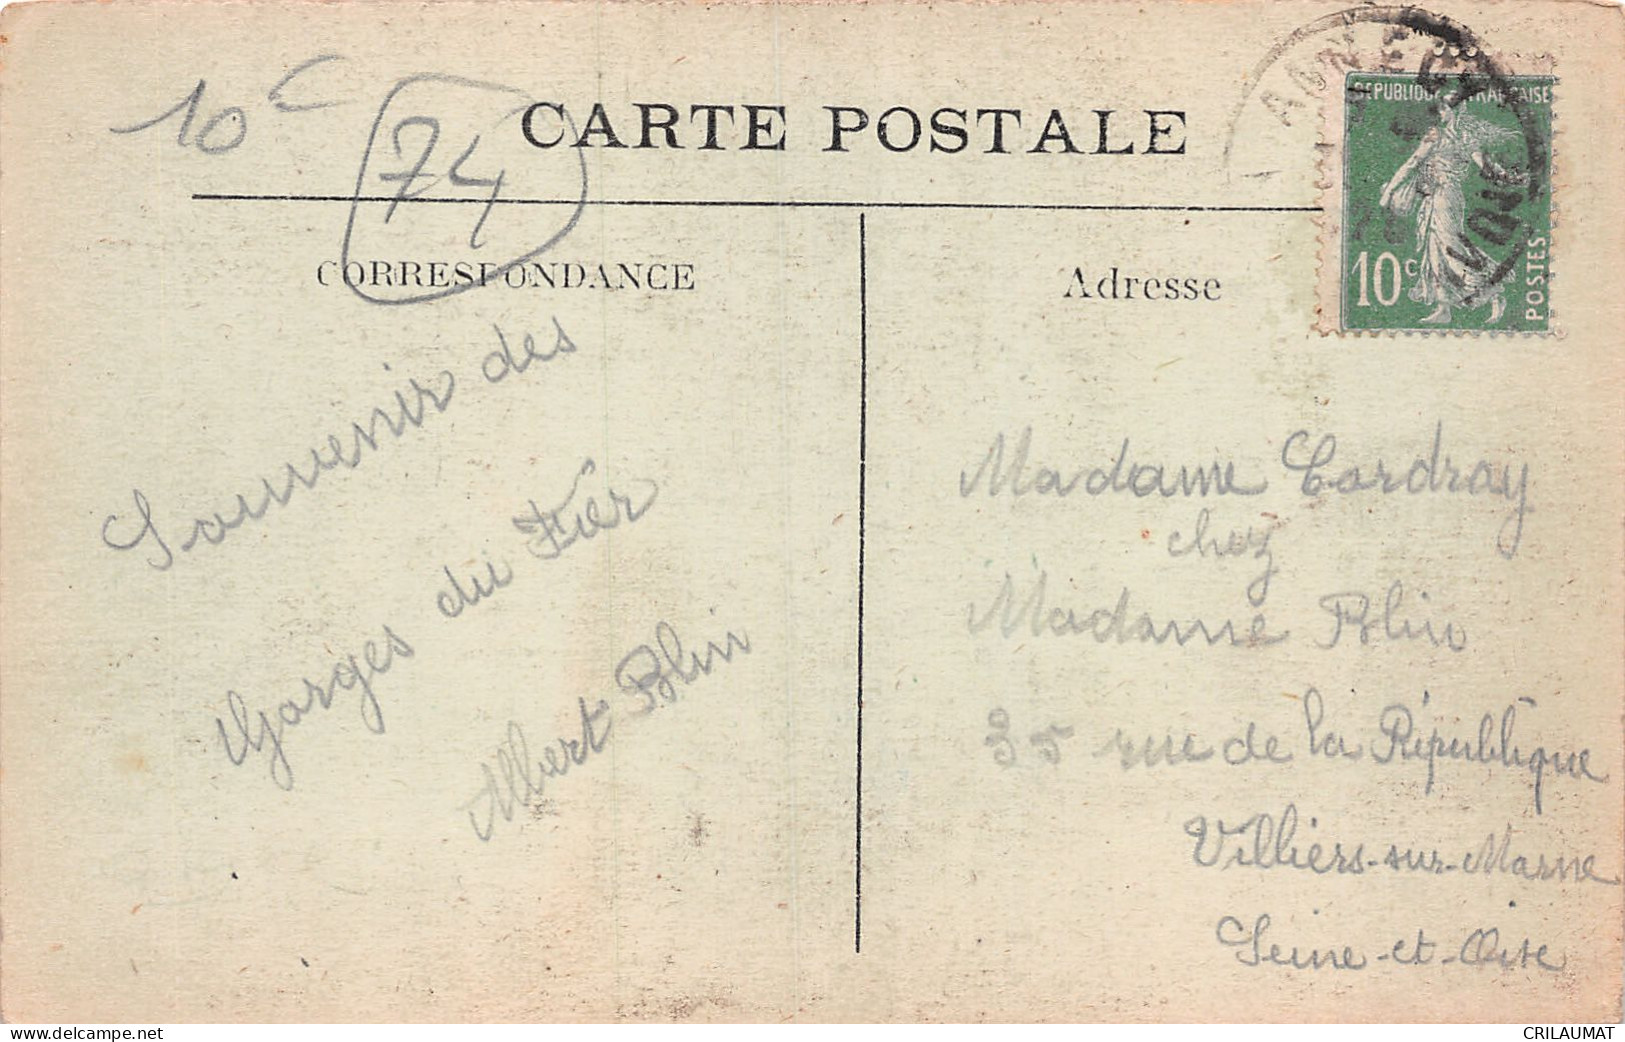 10c
74
CARTE POSTALE
CORRESPONDANCE
Adresse
REPUBLIQUE FRANÇAISE
10c
POSTES
ANNECY
Souvenir des
Gorges du Fièr
Albert Polin
Madame Cordray
chez
Madame Polin
35 rue de la République
Villiers-sur-Marne
Seine-et-Oise
www.delcampe.net
CRILAUMAT